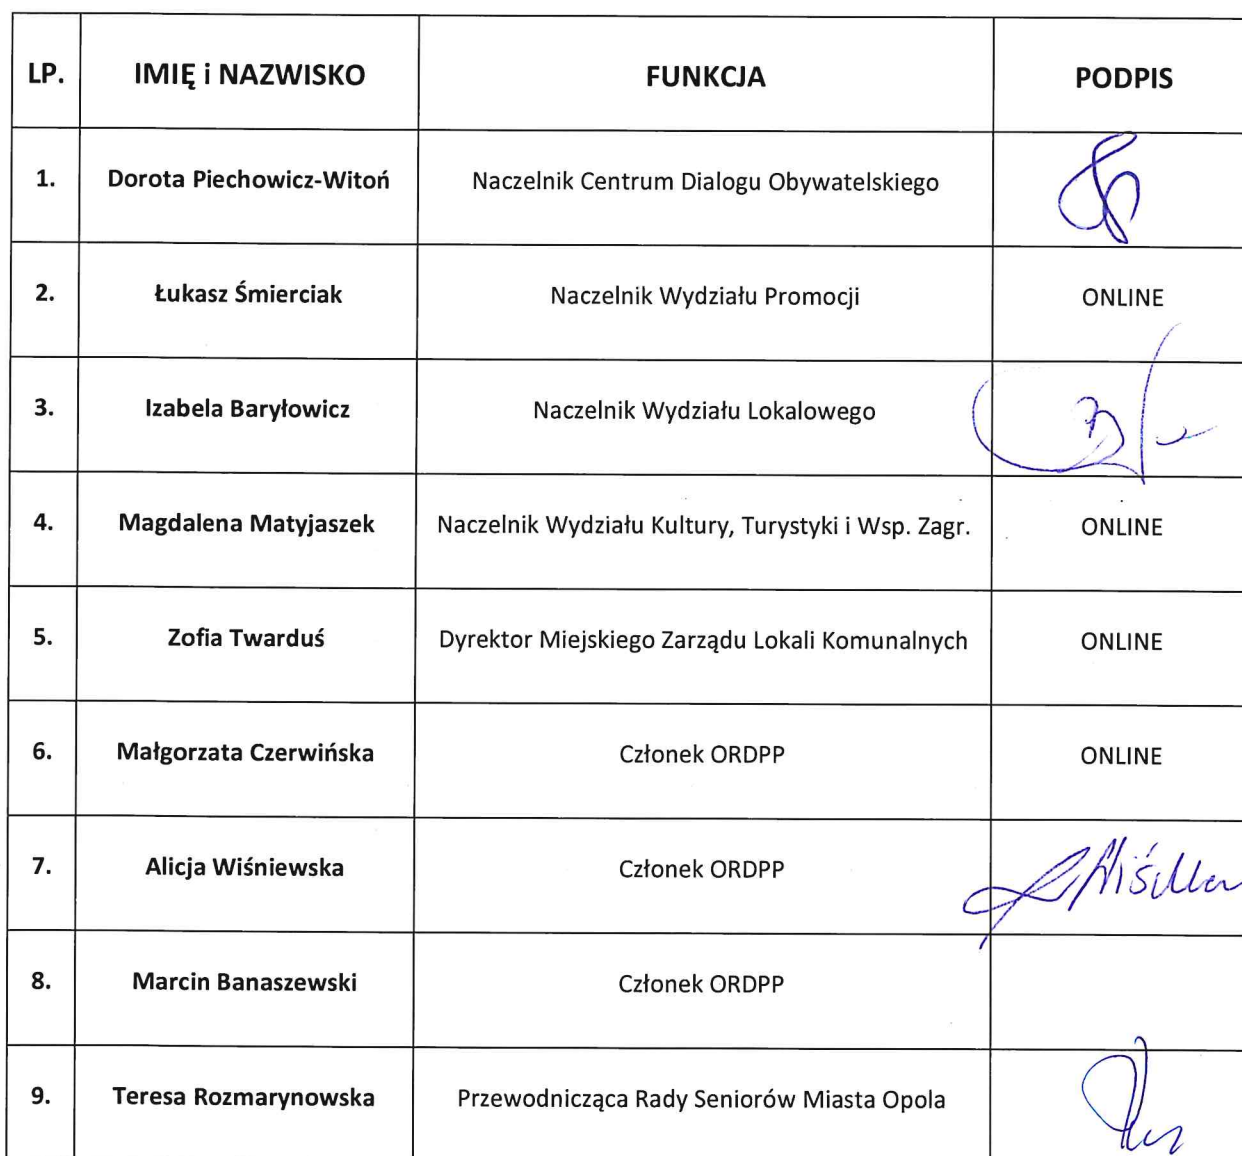 LP. IMIĘ i NAZWISKO FUNKCJA PODPIS
1. Dorota Piechowicz-Witoń Naczelnik Centrum Dialogu Obywatelskiego
2. Łukasz Śmierciak Naczelnik Wydziału Promocji ONLINE
3. Izabela Baryłowicz Naczelnik Wydziału Lokalowego
4. Magdalena Matyjaszek Naczelnik Wydziału Kultury, Turystyki i Wsp. Zagr. ONLINE
5. Zofia Twarduś Dyrektor Miejskiego Zarządu Lokali Komunalnych ONLINE
6. Małgorzata Czerwińska Członek ORDPP ONLINE
7. Alicja Wiśniewska Członek ORDPP
8. Marcin Banaszewski Członek ORDPP
9. Teresa Rozmarynowska Przewodnicząca Rady Seniorów Miasta Opola